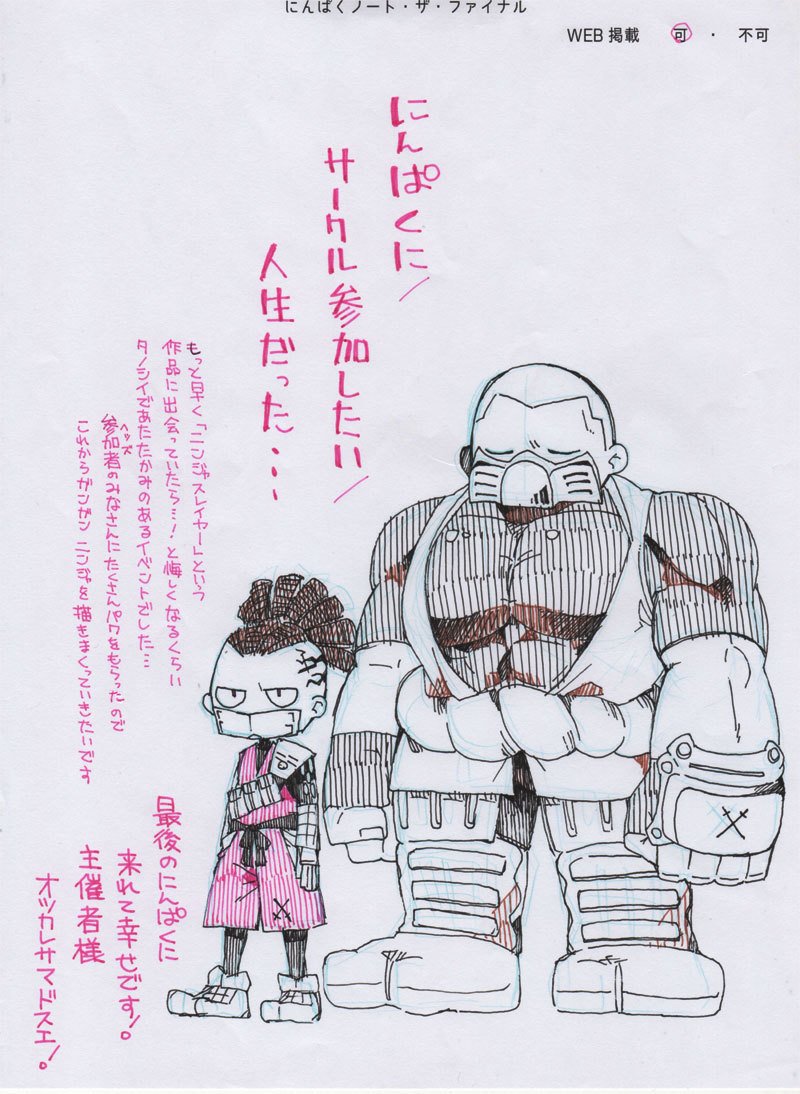 にんぱくノート・ザ・ファイナル
WEB掲載　可　・　不可
にんぱくに
サークル参加したい
人生だった…
もっと早く「ニンジャスレイヤー」という
作品に出会っていたら…！と悔しくなるくらい
タノシイであたたかみのあるイベントでした…
ヘッズ
参加者のみなさんにたくさんパワをもらったので
これからガンガンニンジャを描きまくっていきたいです
最後のにんぱくに
来れて幸せです！
主催者様
オツカレサマドスエ！